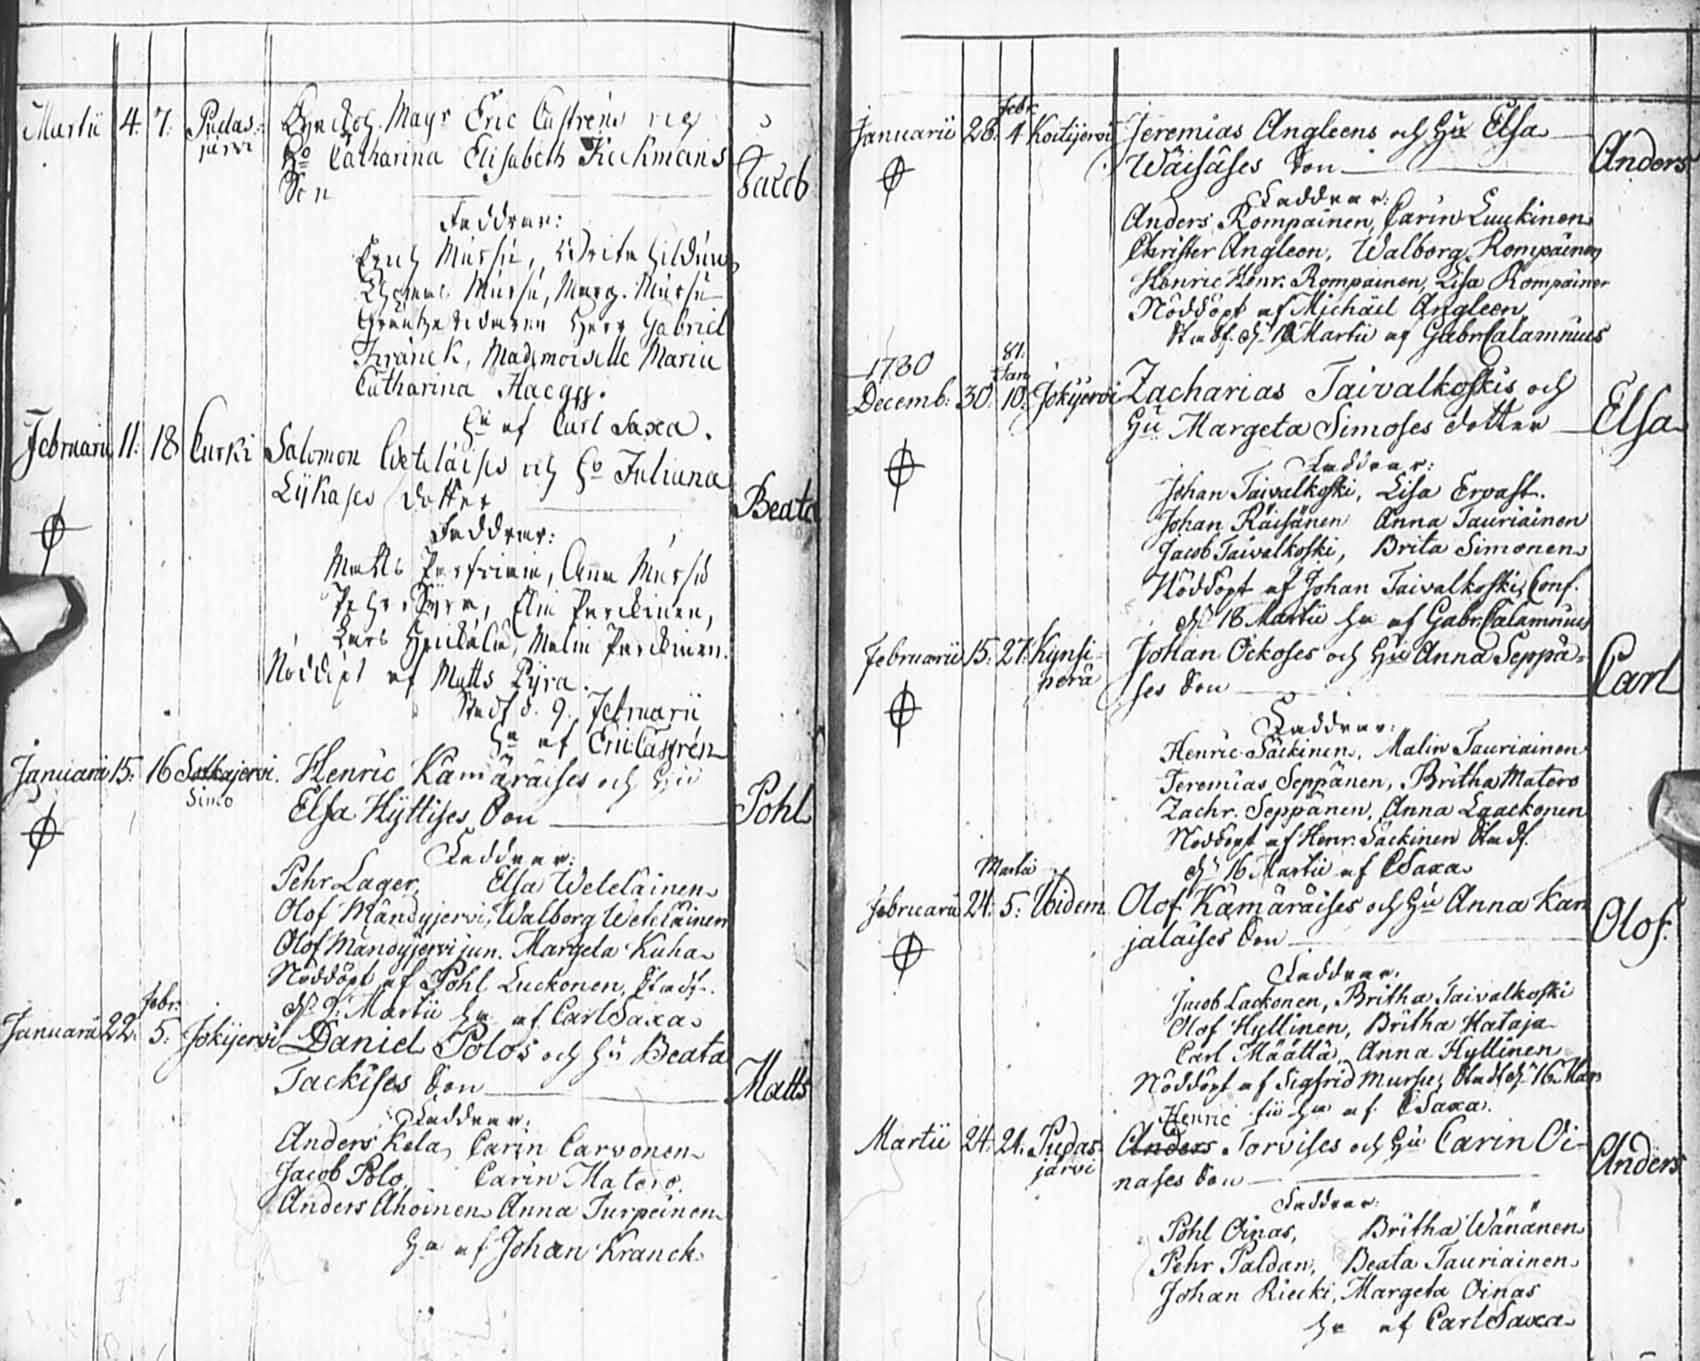 Martii 4. 7. Pudas-
järvi
Magr Eric Castréns och
Catharina Elisabeth Keckmans
Son
Jacob
Faddrar:
Mursu, Brita
Mursu, Marg. Mursu
Herr Gabriel
Kranck, Mademoiselle Maria
Catharina Haegg.
af Carl Saxa.
Februarii 11. 18. Curki
Salomon och Ho Juliana
dotter
Beata
Faddrar:
Matts Anna Mursu
Pehr Elin
Lars Malin
Nöddöpt af Matts Pyra.
Stadf. d. 9. Februarii
af Eric Castrén
Januarii 15. 16. Sotkajervi.
Simo
Henric Kämäräises och Hu
Elsa Hyttises Son
Pohl
Faddrar:
Pehr Lager, Elsa Weteläinen
Olof Mändyjervi, Walborg Weteläinen
Olof Mändyjervi jun. Margeta Kuha
Nöddöpt af Pohl Luckonen, Stadf.
d. 9. Martii af Carl Saxa
Febr.
Januarii 22. 5. Jokijervi
Daniel Polos och Hu Beata
Tackises Son
Matts
Faddrar:
Anders Kela, Carin Carvonen
Jacob Polo, Carin Matero.
Anders Ahoinen Anna Turpeinen
af Johan Kranck
Febr.
Januarii 28. 4 Koitijervi
Jeremias Angleens och Hu Elsa
Wäisäses Son
Anders
Faddrar:
Anders Kompainen, Carin Luukinen
Christer Angleen, Walborg Kompainen
Henric Henr. Kompainen, Lisa Kompainen
Nöddöpt af Michäel Angleen
Stadf. Martii af Gabr. Calamnius
1780 81.
Jan.
Decemb. 30. 10. Jokijervi
Zacharias Taivalkoskis och
Hu Margeta Simoses dotter
Elsa
Faddrar:
Johan Taivalkoski, Lisa Ervast.
Johan Räisänen Anna Tauriainen
Jacob Taivalkoski, Brita Simonen
Nöddöpt af Johan Taivalkoski, Conf.
d. 18 Martii af Gabr. Calamnius
Februarii 15. 27. Kynsi-
perä
Johan Ockoses och Hu Anna Seppä-
ses Son
Carl
Faddrar:
Henric Säckinen, Malin Tauriainen
Jeremias Seppänen, Britha Matero
Zachr. Seppänen, Anna Laackonen
Nöddöpt af Henr. Säckinen Stadf.
d. 16 Martii af CSaxa
Martii
Februarii 24. 5. Ibidem
Olof Kämäräises och Hu Anna Kar
jalaises Son
Olof.
Faddrar:
Jacob Lackonen, Britha Taivalkoski
Olof Hyttinen, Britha Hataja
Carl Määttä, Anna Hyttinen
Nöddöpt af Sigfrid Mursu, Stadf. d. 16 Mar
af CSaxa.
Henric
Martii 24. 24. Pudas-
järvi
Anders Torvises och Hu Carin Oi-
nases Son
Anders
Faddrar:
Pohl Oinas, Britha Wänänen
Pehr Paldan, Beata Tauriainen
Johan Riecki, Margeta Oinas
af Carl Saxa